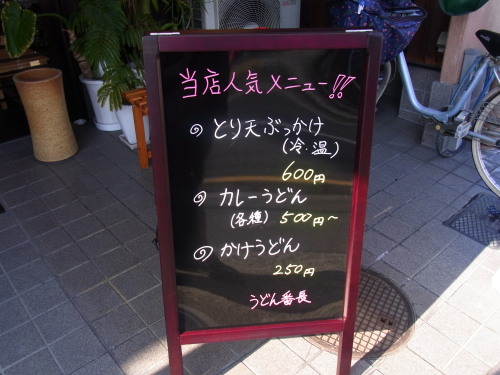 当店人気メニュー!!
とり天ぶっかけ
(冷・温)
600円
カレーうどん
(各種) 500円～
かけうどん
250円
うどん番長